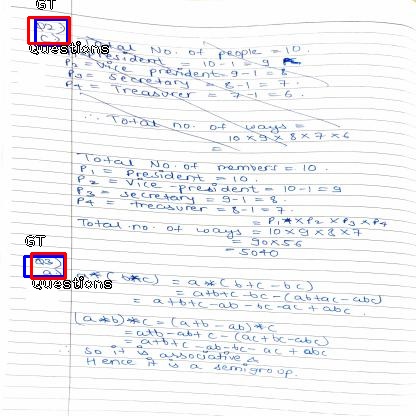 GT
Q2)
c)
Questions
Total No. of people = 10.
President = 10-1 = 9
P2 = Vice president = 9-1 = 8
P3 = secretary = 8-1 = 7.
P4 = Treasurer = 7-1 = 6.
∴ Total no. of ways =
10 x 9 x 8 x 7 x 6
=
Total No. of members = 10.
P1 = President = 10.
P2 = Vice-president = 10-1 = 9
P3 = secretary = 9-1 = 8.
P4 = treasurer = 8-1 = 7.
= P1 x P2 x P3 x P4
Total no. of ways = 10 x 9 x 8 x 7
= 90 x 56
= 5040
GT
Q3)
a)
Questions
a*(b*c) = a*(b+c-bc)
= a+b+c-bc-(ab+ac-abc)
= a+b+c-ab-bc-ac+abc
(a*b)*c = (a+b-ab)*c
= a+b-ab+c-(ac+bc-abc)
= a+b+c-ab-bc-ac+abc
∴ So it is associative &
Hence it is a semigroup.